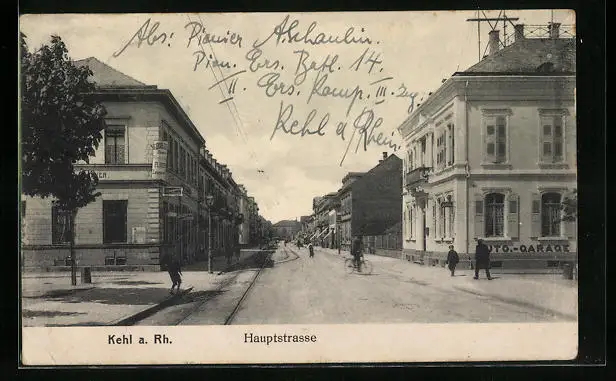 Abs: Pionier A. Schaulin.
Pion. Ers. Batl. 14
II. Ers. Komp. III. Zug
Kehl a Rhein
AUTO.-GARAGE
Kehl a. Rh.
Hauptstrasse